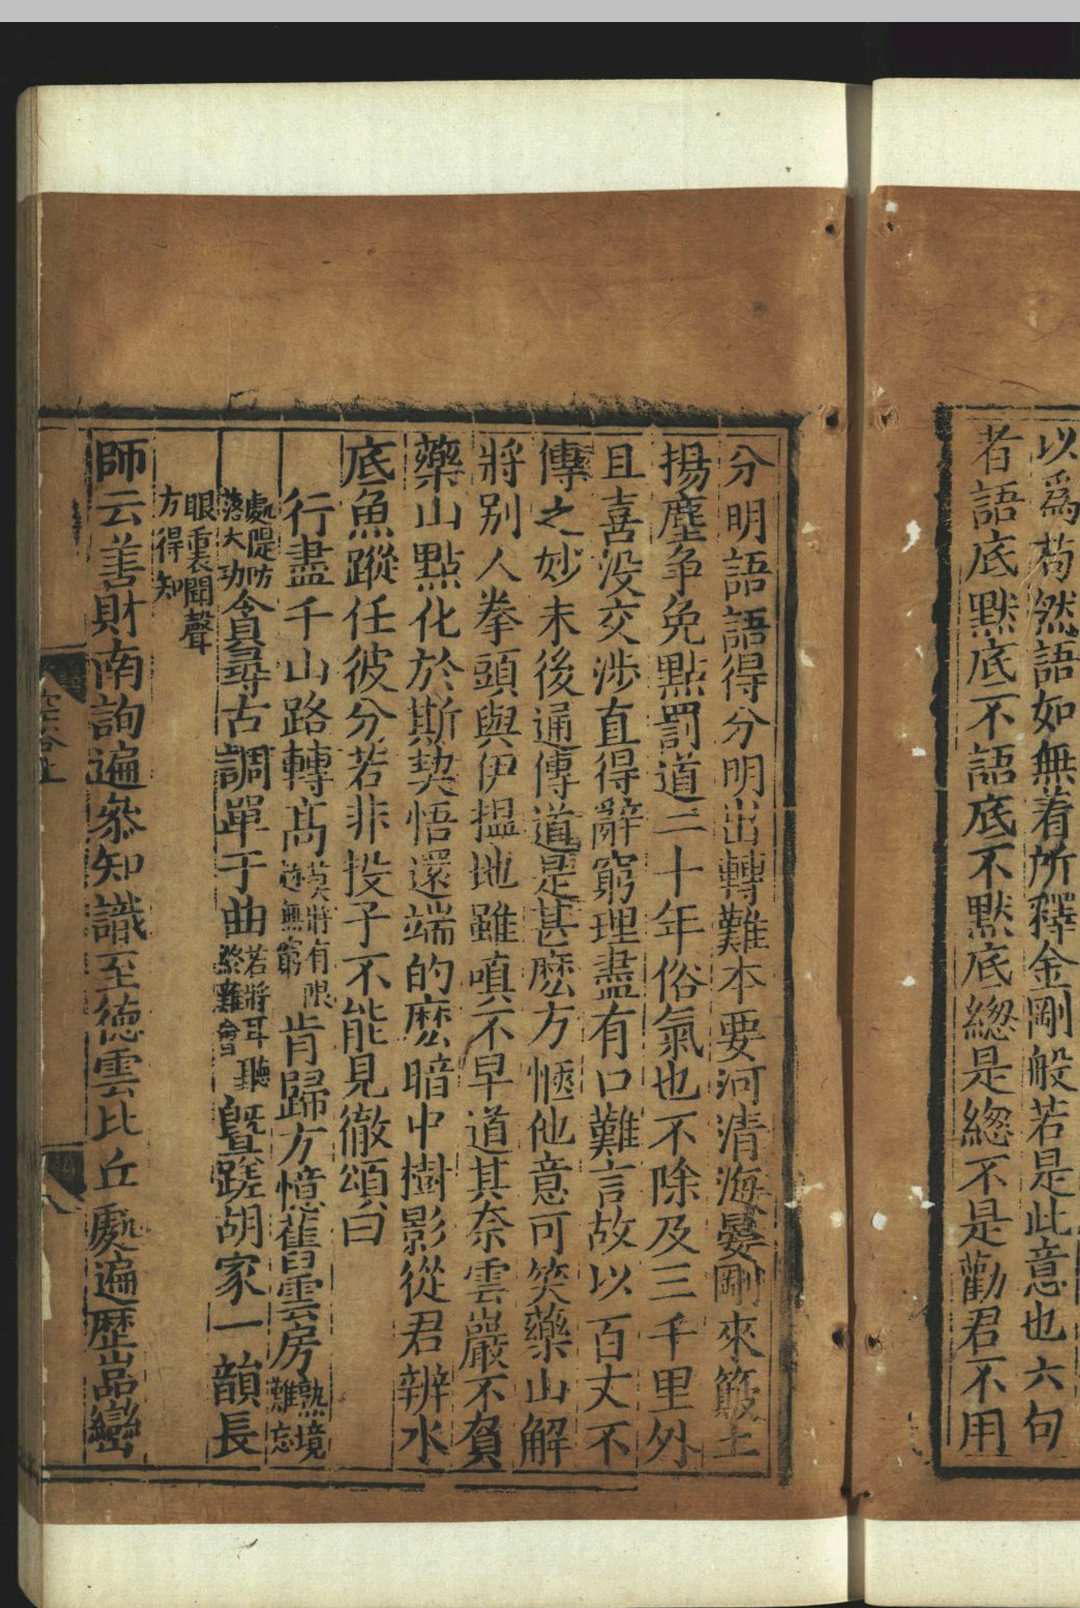 以爲苟然語如無着所釋金剛般若是此意也六句
者語底黙底不語底不黙底緫是緫不是勸君不用
分明語語得分明出轉難本要河清海晏剛來簸土
揚塵争免點罰道二十年俗氣也不除及三千里外
且喜没交渉直得辭窮理盡有口難言故以百丈不
傳之妙末後通傳道是甚麽方愜他意可笑藥山解
將别人拳頭與伊搵地雖嗔不早道其奈雲巖不負
藥山點化於斯契悟還端的麽暗中樹影從君辨水
底魚蹤任彼分若非投子不能見徹頌曰
行盡千山路轉髙莫將有限趂無窮肯歸方憶舊雲房熟境難忘
處隄防落大功貪尋古調單于曲若將耳聽終難會曁蹉胡家一韻長
眼裏聞聲方得知
師云善財南詢遍叅知識至徳雲比丘處遍歴嵓巒